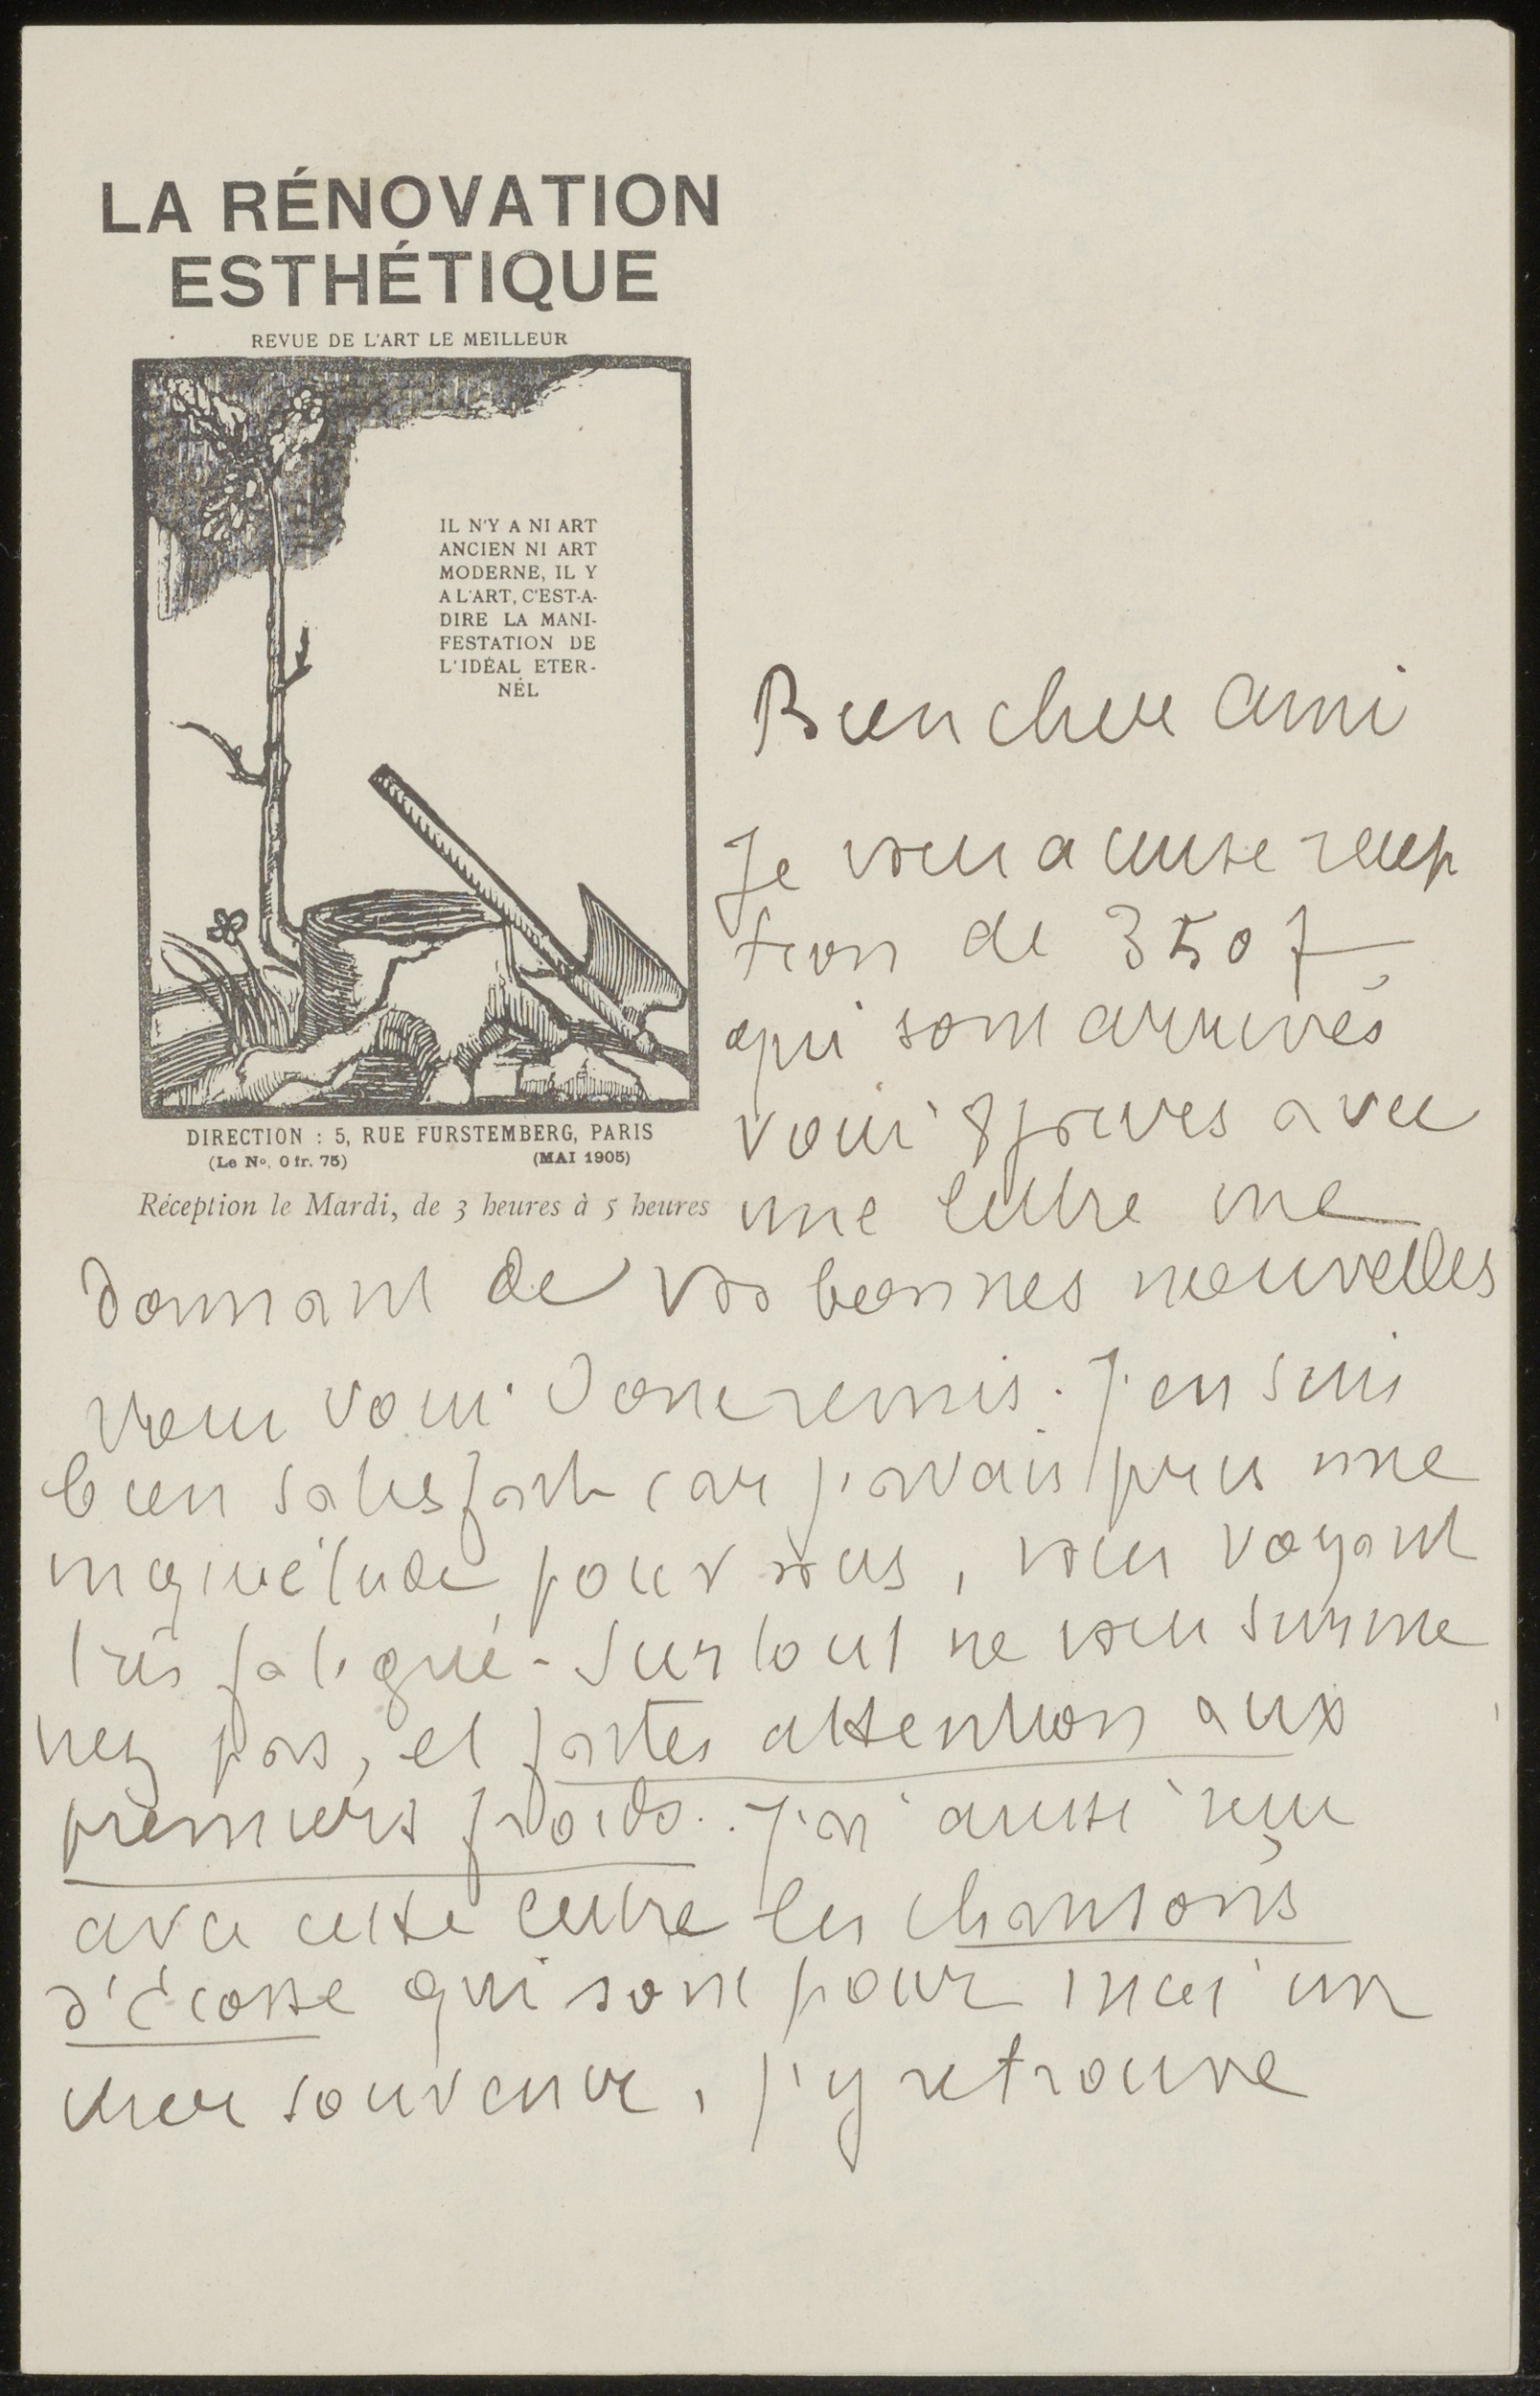 LA RÉNOVATION
ESTHÉTIQUE
REVUE DE L'ART LE MEILLEUR
IL N'Y A NI ART
ANCIEN NI ART
MODERNE, IL Y
A L'ART, C'EST-A-
DIRE LA MANI-
FESTATION DE
L'IDÉAL ETER-
NÉL
DIRECTION : 5, RUE FURSTEMBERG, PARIS
(Le No. 0 fr. 75) (MAI 1905)
Réception le Mardi, de 3 heures à 5 heures
Bien cher ami
Je vous accuse récep
tion de 350 f
qui sont arrivés
voici 8 jours avec
une lettre me
donnant de vos bonnes nouvelles
vous voici donc remis. J'en suis
bien satisfait car j'avais pris une
inquiétude pour vous, vous voyant
très fatigué - Surtout ne vous surme
nez pas, et faites attention aux
premiers froids. J'ai aussi reçu
avec cette lettre les chansons
d'écosse qui sont pour moi un
cher souvenir, j'y retrouve